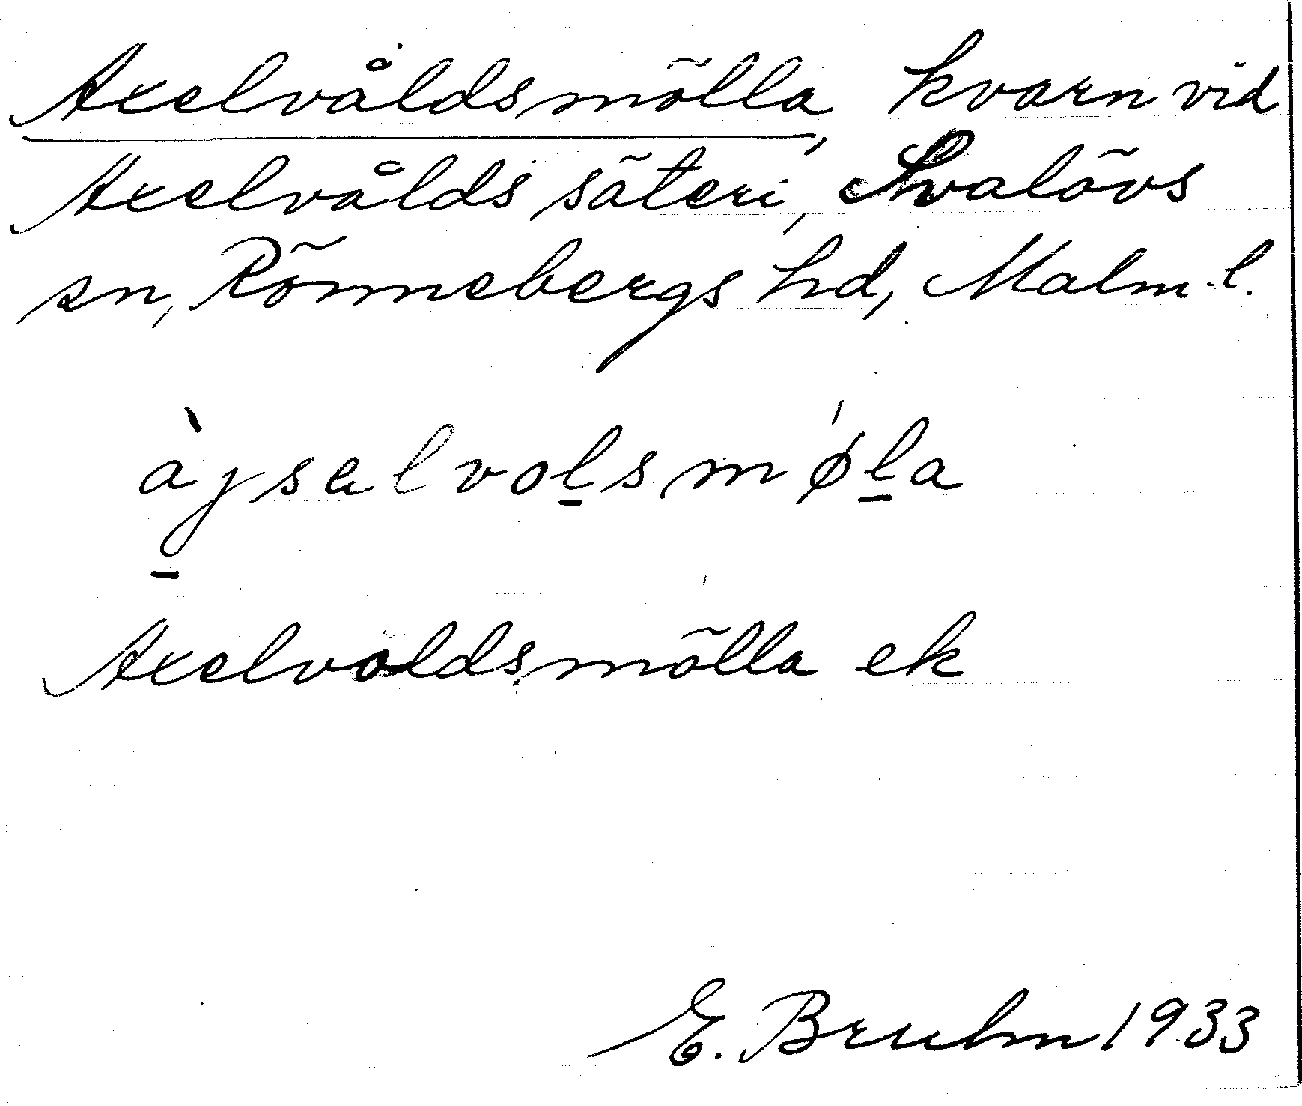 Axelvåldsmölla, kvarn vid
Axelvålds säteri, Svalövs
sn, Rönnebergs hd, Malm.l.
àjsalvoḻsmøḻa
Axelvoldsmölla ek
E. Bruhn 1933